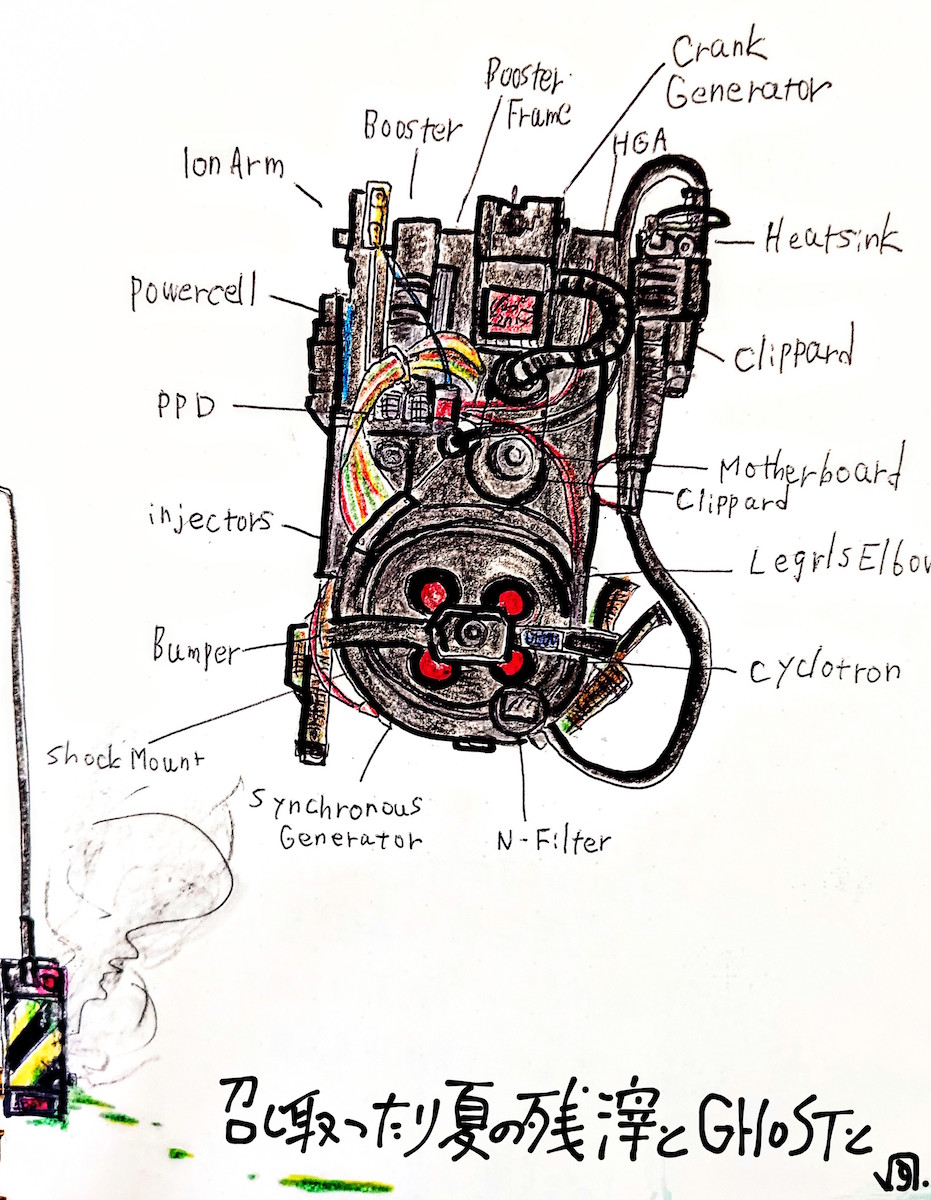 Crank
Generator
Booster
Frame
Booster
HGA
Ion Arm
Heatsink
Powercell
Clippard
PPD
Motherboard
Clippard
injectors
LegrIs Elbow
Bumper
Cyclotron
Shock Mount
Synchronous
Generator
N-Filter
召し取ったり夏の残滓とGHOSTと